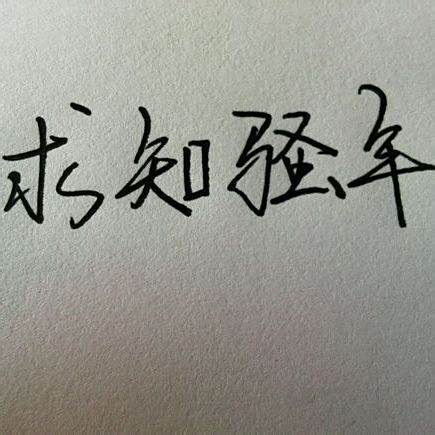 求知骚年